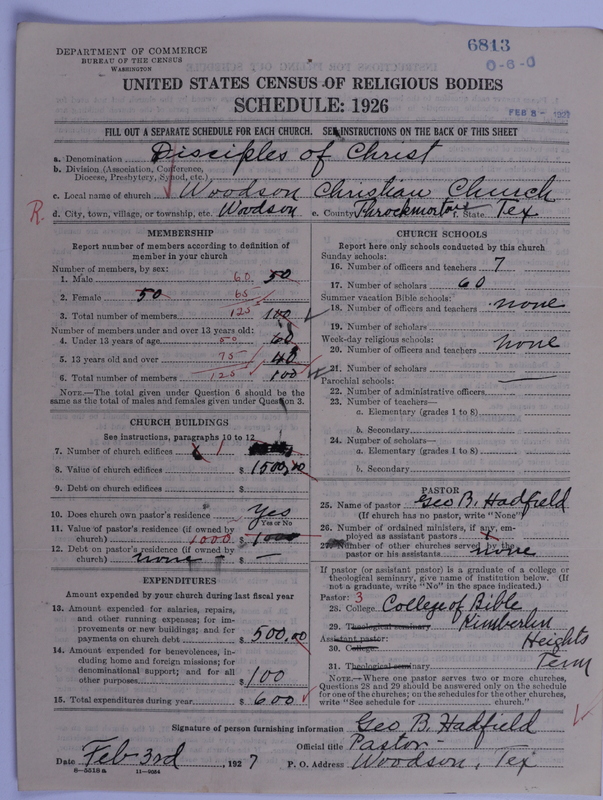 6813
0-6-0
DEPARTMENT OF COMMERCE
BUREAU OF THE CENSUS
WASHINGTON
UNITED STATES CENSUS OF RELIGIOUS BODIES
SCHEDULE: 1926
FEB 8 - 1927
FILL OUT A SEPARATE SCHEDULE FOR EACH CHURCH. SEE INSTRUCTIONS ON THE BACK OF THIS SHEET
a. Denomination Disciples of Christ
b. Division (Association, Conference, Diocese, Presbytery, Synod, etc.)
c. Local name of church Woodson Christian Church
R. d. City, town, village, or township, etc. Woodson e. County Throckmorton f. State Tex
MEMBERSHIP
Report number of members according to definition of
member in your church
Number of members, by sex:
1. Male 60 50
2. Female 50 65
3. Total number of members 125 100
Number of members under and over 13 years old:
4. Under 13 years of age 50 60
5. 13 years old and over 75 40
6. Total number of members 125 100
NOTE.—The total given under Question 6 should be
same as the total of males and females given under Question 3.
CHURCH BUILDINGS
See instructions, paragraphs 10 to 12
7. Number of church edifices 1
8. Value of church edifices $ 1500.00
9. Debt on church edifices $
10. Does church own pastor's residence Yes
Yes or No
11. Value of pastor's residence (if owned by
church) 1000 $ 1000
12. Debt on pastor's residence (if owned by
church) none $ —
EXPENDITURES
Amount expended by your church during last fiscal year
13. Amount expended for salaries, repairs,
and other running expenses; for im-
provements or new buildings; and for
payments on church debt $ 500.00
14. Amount expended for benevolences, in-
cluding home and foreign missions; for
denominational support; and for all
other purposes $ 100
15. Total expenditures during year $ 600
CHURCH SCHOOLS
Report here only schools conducted by this church
Sunday schools:
16. Number of officers and teachers 7
17. Number of scholars 60
Summer vacation Bible schools:
18. Number of officers and teachers none
19. Number of scholars
Week-day religious schools:
20. Number of officers and teachers none
21. Number of scholars
Parochial schools:
22. Number of administrative officers
23. Number of teachers—
a. Elementary (grades 1 to 8)
b. Secondary
24. Number of scholars—
a. Elementary (grades 1 to 8)
b. Secondary
PASTOR
25. Name of pastor Geo B. Hadfield
(If church has no pastor, write "None")
26. Number of ordained ministers, if any, em-
ployed as assistant pastors x
27. Number of other churches served by the
pastor or his assistants none
If pastor (or assistant pastor) is a graduate of a college or
theological seminary, give name of institution below. (If
not a graduate, write "No" in the space indicated.)
Pastor: 3
28. College College of Bible
29. Theological seminary Kimberlin
Assistant pastor: Heights
30. College
31. Theological seminary Tenn
NOTE.—Where one pastor serves two or more churches,
Questions 28 and 29 should be answered only on the schedule
for one of the churches; on the schedules for the other churches,
write "See schedule for church."
Signature of person furnishing information Geo B. Hadfield
Official title Pastor
Date Feb 3rd, 1927 P. O. Address Woodson, Tex
8-5518a 11-9054